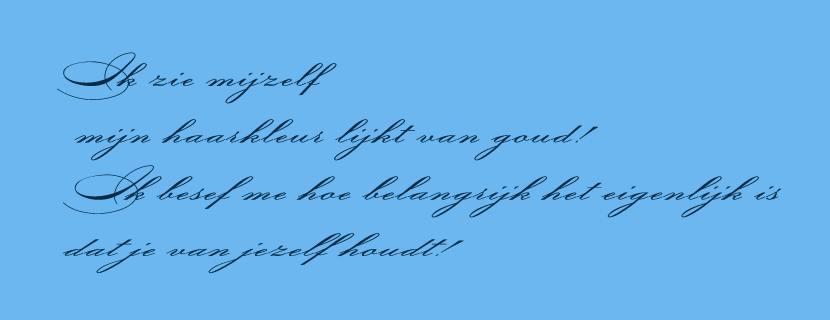 Ik zie mijzelf
mijn haarkleur lijkt van goud!
Ik besef me hoe belangrijk het eigenlijk is
dat je van jezelf houdt!